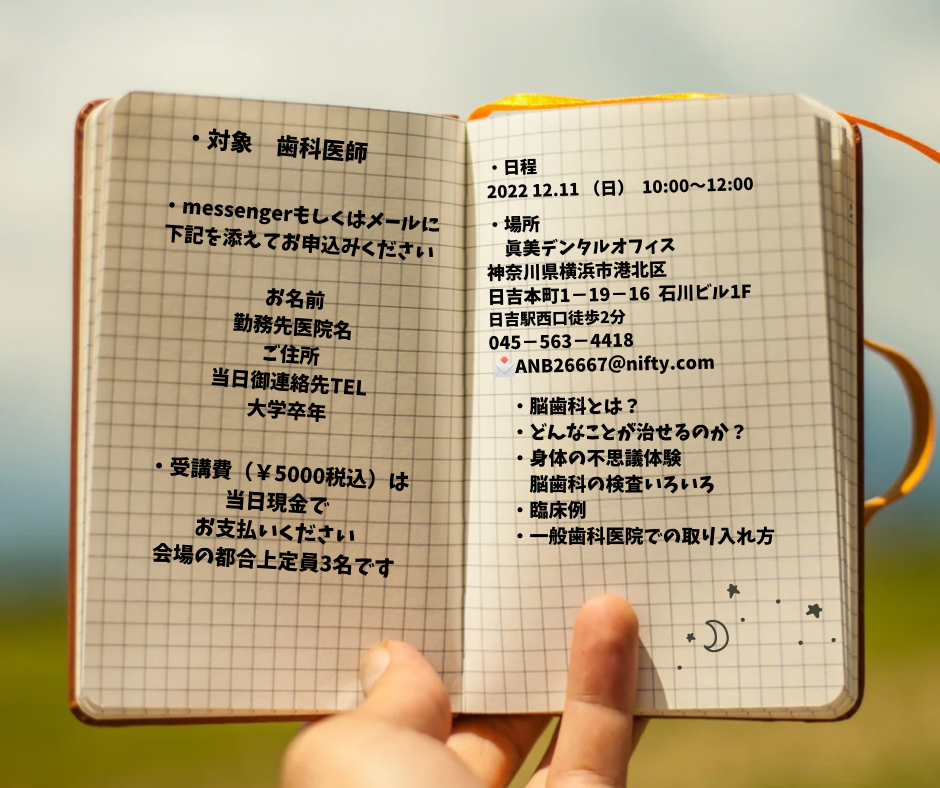 ・対象　歯科医師
・messengerもしくはメールに
下記を添えてお申込みください
お名前
勤務先医院名
ご住所
当日御連絡先TEL
大学卒年
・受講費（￥5000税込）は
当日現金で
お支払いください
会場の都合上定員3名です
・日程
2022 12.11 （日） 10:00〜12:00
・場所
眞美デンタルオフィス
神奈川県横浜市港北区
日吉本町1－19－16 石川ビル1F
日吉駅西口徒歩2分
045－563－4418
ANB26667@nifty.com
・脳歯科とは？
・どんなことが治せるのか？
・身体の不思議体験
脳歯科の検査いろいろ
・臨床例
・一般歯科医院での取り入れ方